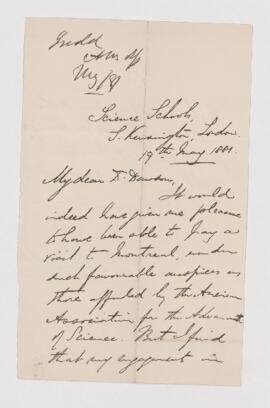 Judd
May /81
Science Schools,
S. Kensington, London.
19th May 1881.
My dear Dr Dawson,
It would
indeed have given me pleasure
to have been able to pay a
visit to Montreal, under
such favourable auspices as
those afforded by the
Association for the
of Science. But I find
that my engagement in